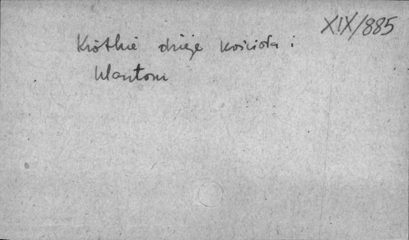 XIX/885
Krótkie dzieje kościoła i
klasztoru